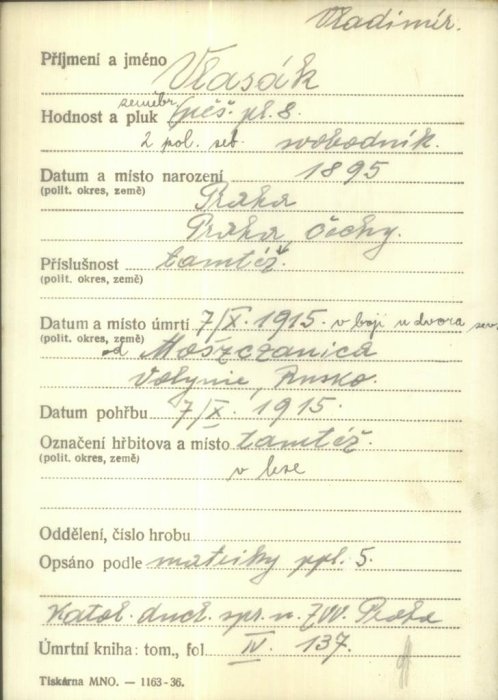 Vladimír.
Příjmení a jméno Vlasák
zeměbr.
Hodnost a pluk pěš. pl. 8.
2 pol. set. svobodník.
Datum a místo narození 1895
(polit. okres, země) Praha
Praha, Čechy.
Příslušnost tamtéž.
(polit. okres, země)
Datum a místo úmrtí 7/X. 1915. v boji u dvora sev.
(polit. okres, země) od Moszczanica
Volynie, Rusko.
Datum pohřbu 7/X. 1915.
Označení hřbitova a místo tamtéž.
(polit. okres, země)
v lese
Oddělení, číslo hrobu
Opsáno podle matriky ppl. 5.
Katol. duch. spr. n. ZVV. Praha
Úmrtní kniha: tom., fol. IV. 137.
Tiskárna MNO. — 1163-36.